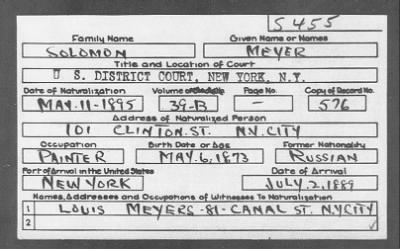 S455
Family Name Given Name or Names
SOLOMON MEYER
Title and Location of Court
U S. DISTRICT COURT, NEW YORK, N.Y.
Date of Naturalization Volume or Page No. Copy of Record No.
MAY-11-1895 39-B — 576
Address of Naturalized Person
101 CLINTON.ST. N.N.CITY
Occupation Birth Date or Age Former Nationality
PAINTER MAY.6,1873 RUSSIAN
Port of Arrival in the United States Date of Arrival
NEW YORK JULY.2,1889
Names, Addresses and Occupations of Witnesses To Naturalization
1 LOUIS MEYERS-81-CANAL ST. N.Y.CITY
2